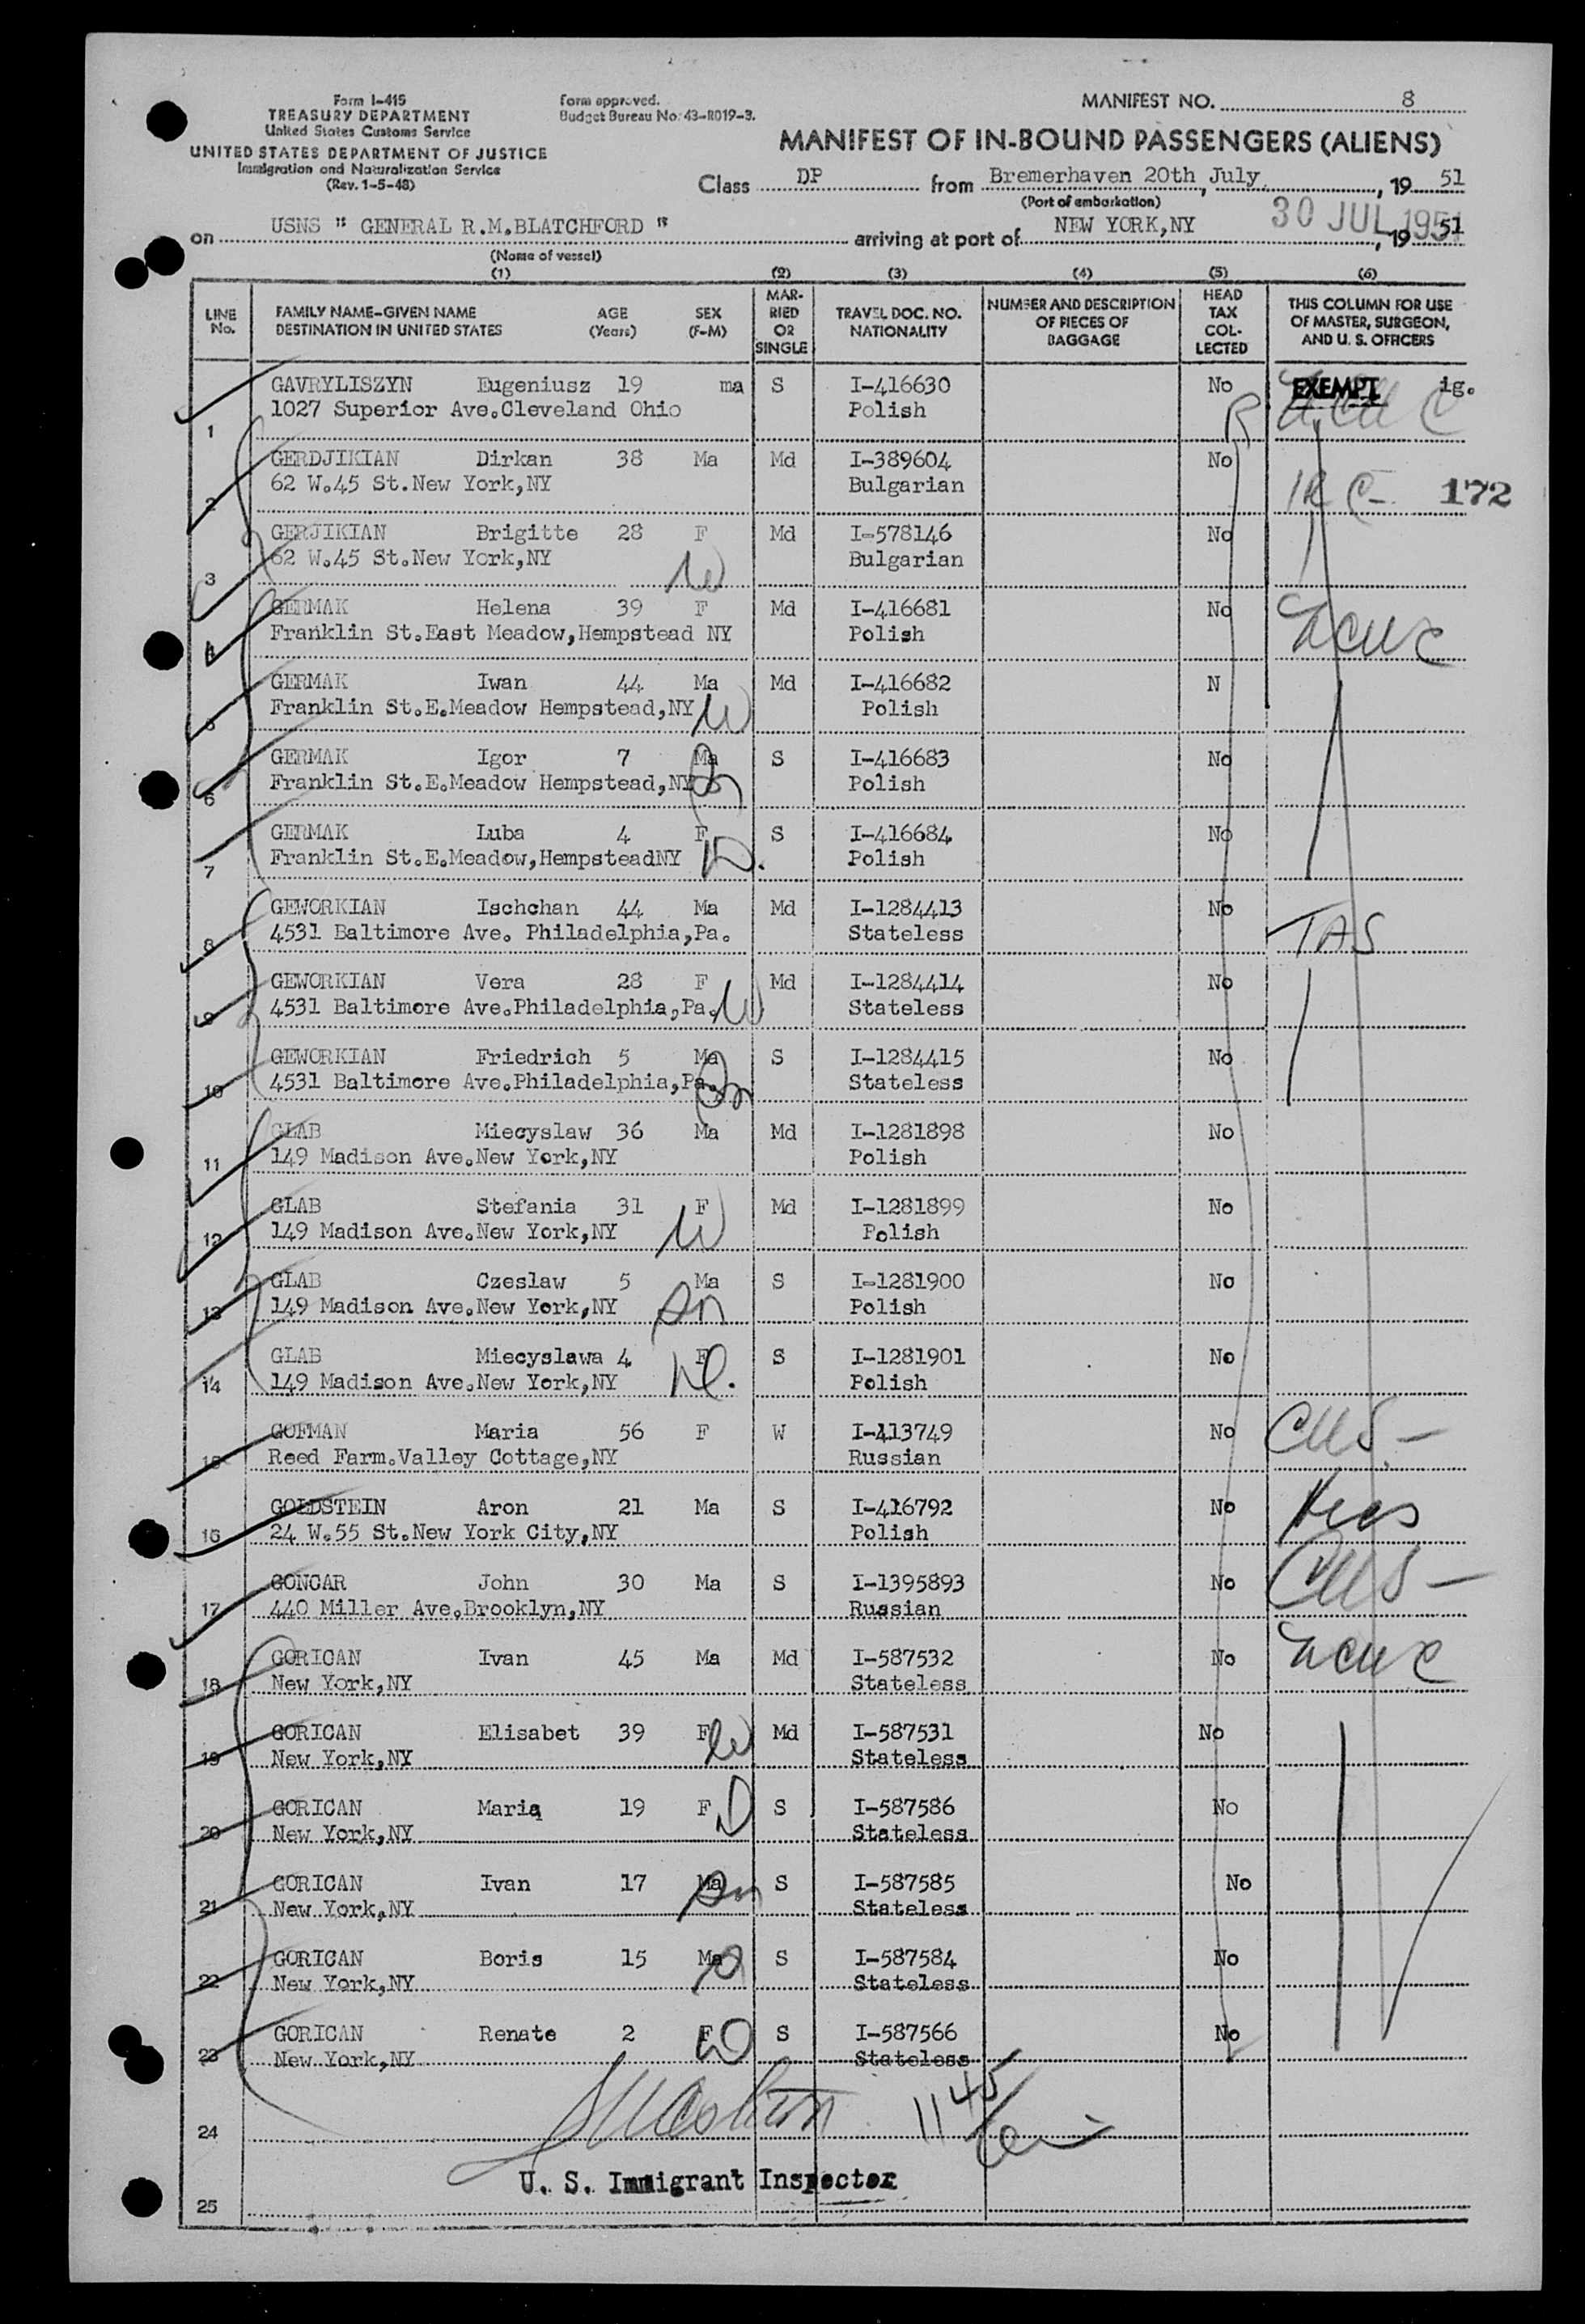 Form I-415
TREASURY DEPARTMENT
United States Customs Service
UNITED STATES DEPARTMENT OF JUSTICE
Immigration and Naturalization Service
(Rev. 1-5-48)
Form approved.
Budget Bureau No. 43-R019-3.
MANIFEST NO. 8
MANIFEST OF IN-BOUND PASSENGERS (ALIENS)
Class DP from Bremerhaven 20th, July, 19 51
(Port of embarkation)
on USNS " GENERAL R.M.BLATCHFORD " arriving at port of NEW YORK,NY 30 JUL 1951, 19 51
(Name of vessel)
(1) (2) (3) (4) (5) (6)
LINE No. FAMILY NAME-GIVEN NAME DESTINATION IN UNITED STATES AGE (Years) SEX (F-M) MARRIED OR SINGLE TRAVEL DOC. NO. NATIONALITY NUMBER AND DESCRIPTION OF PIECES OF BAGGAGE HEAD TAX COLLECTED THIS COLUMN FOR USE OF MASTER, SURGEON, AND U. S. OFFICERS
GAVRYLISZYN Eugeniusz 19 ma S I-416630 No EXEMPT ig.
1 1027 Superior Ave.Cleveland Ohio Polish
GERDJIKIAN Dirkan 38 Ma Md I-389604 No
2 62 W.45 St.New York,NY Bulgarian 172
GERJIKIAN Brigitte 28 F Md I-578146 No
3 62 W.45 St.New York,NY Bulgarian W
GERMAK Helena 39 F Md I-416681 No
4 Franklin St.East Meadow,Hempstead NY Polish
GERMAK Iwan 44 Ma Md I-416682 N
5 Franklin St.E.Meadow Hempstead,NY W Polish
GERMAK Igor 7 Ma S I-416683 No
6 Franklin St.E.Meadow Hempstead,NY Polish
GERMAK Luba 4 F S I-416684 No
7 Franklin St.E.Meadow,HempsteadNY Polish
GEWORKIAN Ischchan 44 Ma Md I-1284413 No
8 4531 Baltimore Ave. Philadelphia,Pa. Stateless TAS
GEWORKIAN Vera 28 F Md I-1284414 No
9 4531 Baltimore Ave.Philadelphia,Pa. W Stateless
GEWORKIAN Friedrich 5 Ma S I-1284415 No
10 4531 Baltimore Ave.Philadelphia,Pa. Stateless
GLAB Miecyslaw 36 Ma Md I-1281898 No
11 149 Madison Ave.New York,NY Polish
GLAB Stefania 31 F Md I-1281899 No
12 149 Madison Ave.New York,NY W Polish
GLAB Czeslaw 5 Ma S I-1281900 No
13 149 Madison Ave.New York,NY Sn Polish
GLAB Miecyslawa 4 F S I-1281901 No
14 149 Madison Ave.New York,NY Polish
GOFMAN Maria 56 F W I-413749 No
15 Reed Farm.Valley Cottage,NY Russian
GOLDSTEIN Aron 21 Ma S I-416792 No
16 24 W.55 St.New York City,NY Polish
GONCAR John 30 Ma S I-1395893 No
17 440 Miller Ave.Brooklyn,NY Russian
GORICAN Ivan 45 Ma Md I-587532 No
18 New York,NY Stateless
GORICAN Elisabet 39 F W Md I-587531 No
19 New York,NY Stateless
GORICAN Maria 19 F D S I-587586 No
20 New York,NY Stateless
GORICAN Ivan 17 Ma Sn S I-587585 No
21 New York,NY Stateless
GORICAN Boris 15 Ma S I-587584 No
22 New York,NY Stateless
GORICAN Renate 2 F D S I-587566 No
23 New York,NY Stateless
24 1145
U. S. Immigrant Inspector
25